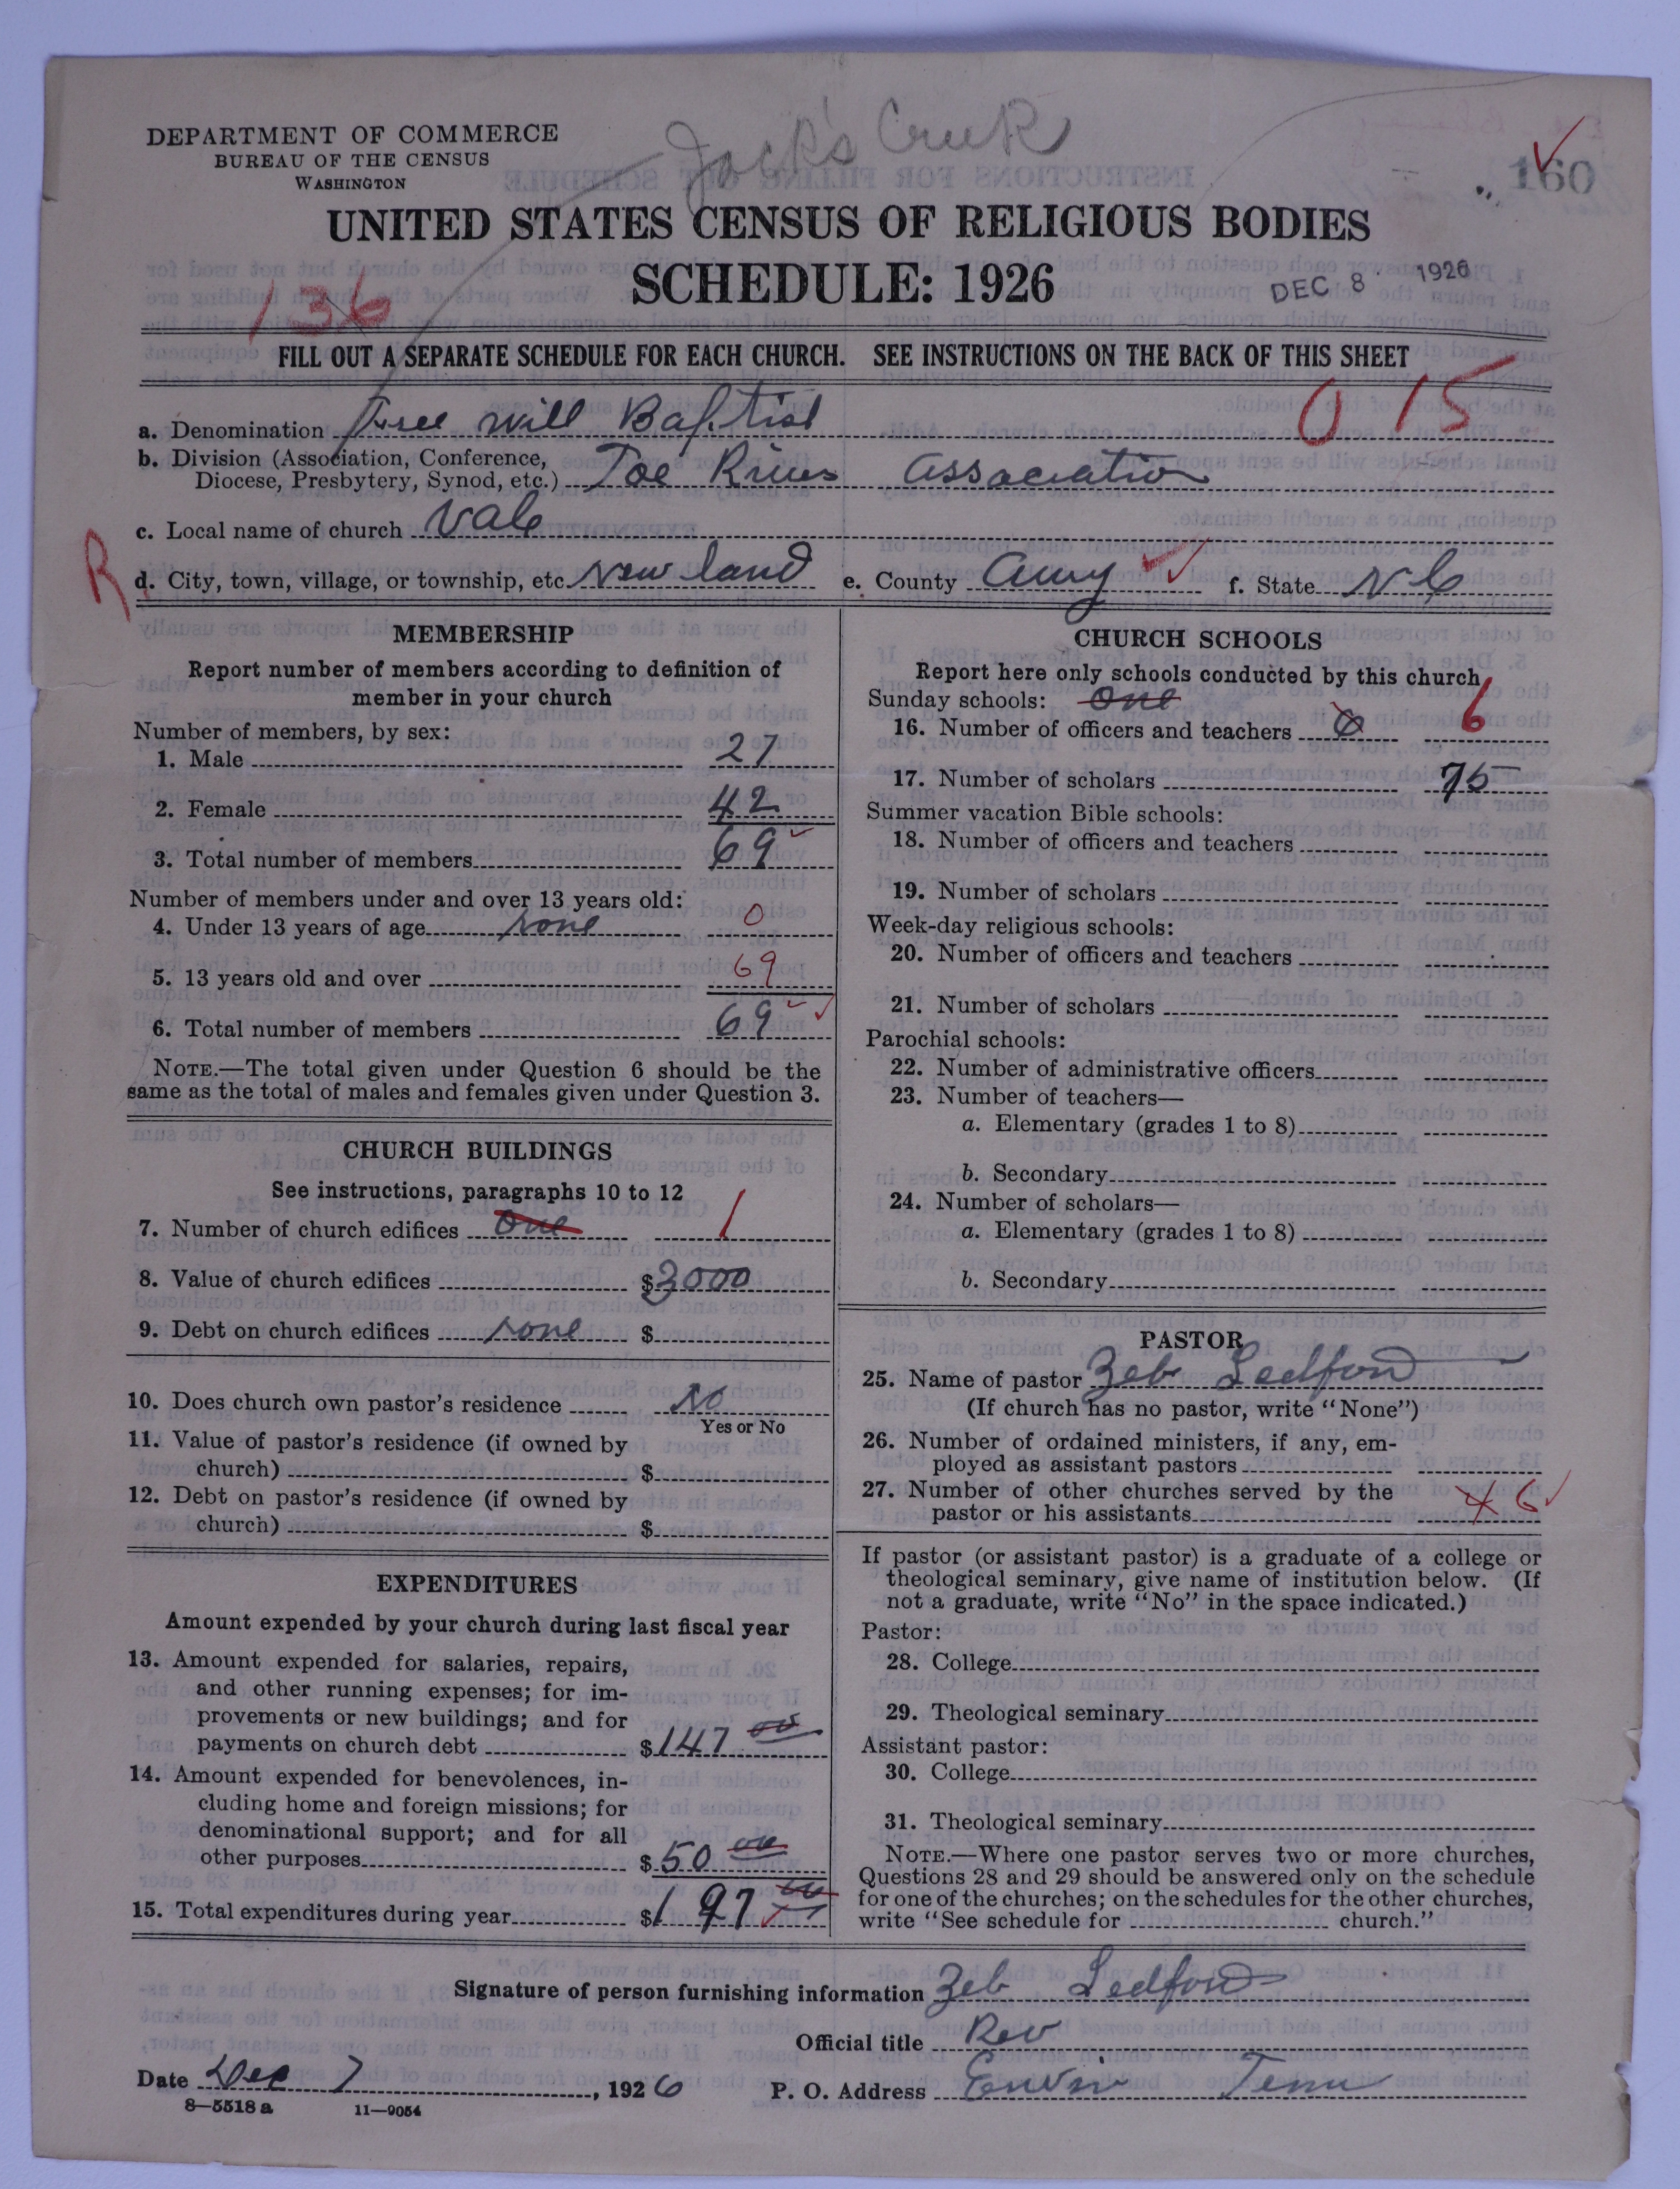 Jack's Creek
DEPARTMENT OF COMMERCE
BUREAU OF THE CENSUS
WASHINGTON
160
UNITED STATES CENSUS OF RELIGIOUS BODIES
SCHEDULE: 1926
DEC 8 1926
136
FILL OUT A SEPARATE SCHEDULE FOR EACH CHURCH. SEE INSTRUCTIONS ON THE BACK OF THIS SHEET
0 15
a. Denomination Free will Baptist
b. Division (Association, Conference,
Diocese, Presbytery, Synod, etc.) Toe River Association
c. Local name of church Vale
R
d. City, town, village, or township, etc. New land e. County Avery f. State N C
MEMBERSHIP
Report number of members according to definition of
member in your church
Number of members, by sex:
1. Male 27
2. Female 42
3. Total number of members 69
Number of members under and over 13 years old:
4. Under 13 years of age none 0
5. 13 years old and over 69
6. Total number of members 69
NOTE.—The total given under Question 6 should be the
same as the total of males and females given under Question 3.
CHURCH BUILDINGS
See instructions, paragraphs 10 to 12
7. Number of church edifices one 1
8. Value of church edifices $3000
9. Debt on church edifices none $
10. Does church own pastor's residence No
Yes or No
11. Value of pastor's residence (if owned by
church) $
12. Debt on pastor's residence (if owned by
church) $
EXPENDITURES
Amount expended by your church during last fiscal year
13. Amount expended for salaries, repairs,
and other running expenses; for im-
provements or new buildings; and for
payments on church debt $147 00
14. Amount expended for benevolences, in-
cluding home and foreign missions; for
denominational support; and for all
other purposes $50 00
15. Total expenditures during year $197 00
CHURCH SCHOOLS
Report here only schools conducted by this church
Sunday schools: one
16. Number of officers and teachers 6 6
17. Number of scholars 75
Summer vacation Bible schools:
18. Number of officers and teachers
19. Number of scholars
Week-day religious schools:
20. Number of officers and teachers
21. Number of scholars
Parochial schools:
22. Number of administrative officers
23. Number of teachers—
a. Elementary (grades 1 to 8)
b. Secondary
24. Number of scholars—
a. Elementary (grades 1 to 8)
b. Secondary
PASTOR
25. Name of pastor Zeb Ledford
(If church has no pastor, write "None")
26. Number of ordained ministers, if any, em-
ployed as assistant pastors
27. Number of other churches served by the
pastor or his assistants 4 6
If pastor (or assistant pastor) is a graduate of a college or
theological seminary, give name of institution below. (If
not a graduate, write "No" in the space indicated.)
Pastor:
28. College
29. Theological seminary
Assistant pastor:
30. College
31. Theological seminary
NOTE.—Where one pastor serves two or more churches,
Questions 28 and 29 should be answered only on the schedule
for one of the churches; on the schedules for the other churches,
write "See schedule for church."
Signature of person furnishing information Zeb Ledford
Official title Rev
Date Dec 7, 1926 P. O. Address Erwin Tenn
8—5518 a 11—9054